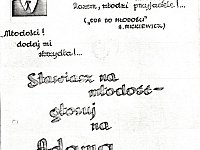 Razem, młodzi przyjaciele!...
("ODA DO MŁODOŚCI"
A. MICKIEWICZ)
„Młodości!
dodaj mi
skrzydła!...
Stawiasz na
młodość—
głosuj
na
Adama